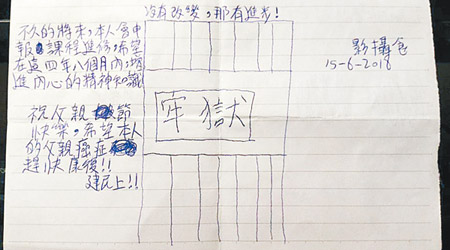 沒有改變，那有進步！
不久的將來，本人會申
報課程進修，希望
在這四年八個月內，增
進內心的精神知識
祝父親節
快樂。希望本人
的父親癌症
趕快康復！！
建民上！！
牢獄
影攝仓
15-6-2018